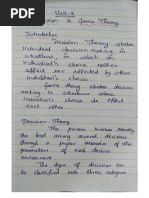 Unit-3
Decision & Game Theory
Introduction
Decision Theory studies
individual decision making in
situations, in which an
individual's choice neither
affect nor affected by other
individual's choices.
Game theory studies decision
making in situation where
individual's choice do affect
each other.
Decision Theory
The process involves identify
the best among several decision
through a proper estimation of
the parameters of each decision
environment.
The type of decision can
be classified into three categories